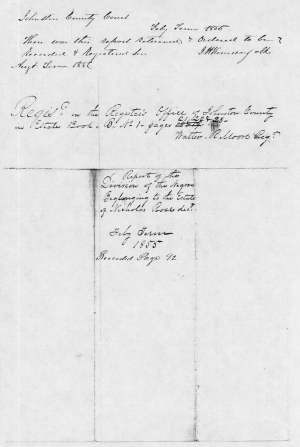 Johnston County Court
Feby Term 1855
Then was this report returned & Ordered to be
Recorded & Registered
Augt Term 1855
Regd in the Register's Office of Johnston County
in Estate Book No 1 pages
Walter R Moore Regr
A Report of the
Division of the Negroes
Belonging to the Estate
of Nicholas decd
Feby Term
1855
Recorded Page 92